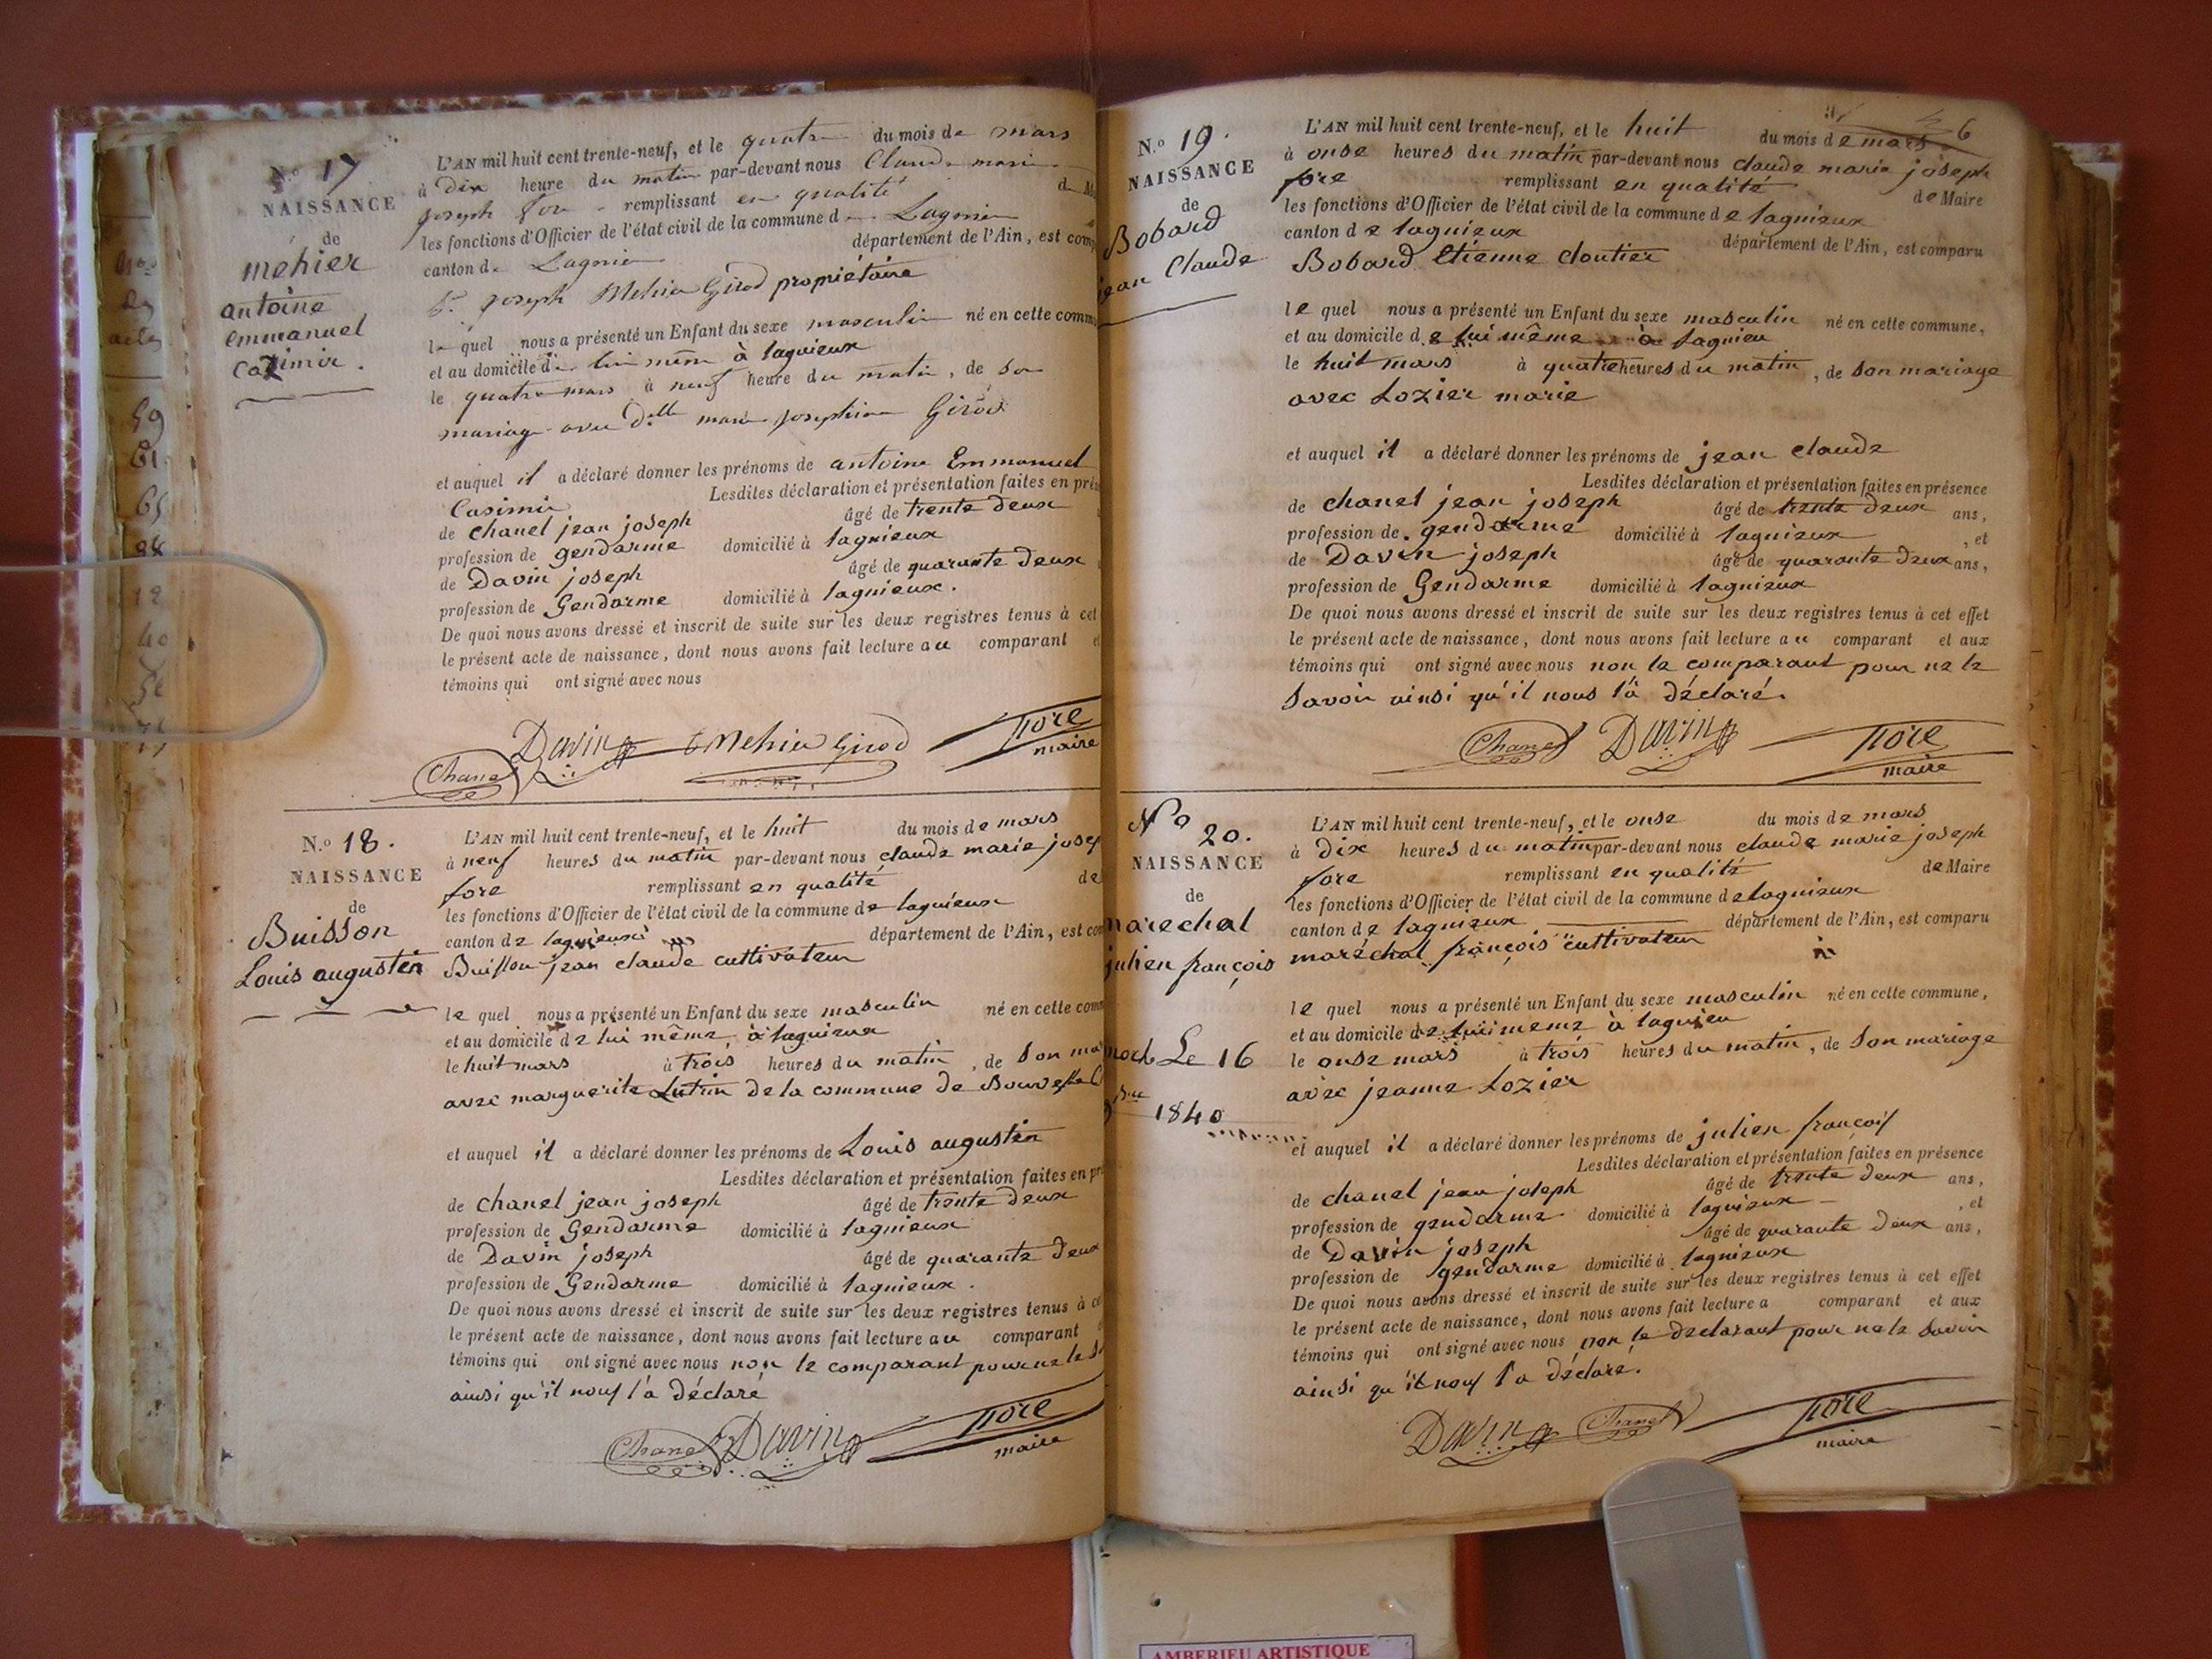 N.º 17
NAISSANCE
de
mehier
antoine
emmanuel
Cazimir.
L'AN mil huit cent trente-neuf, et le quatre du mois de mars
à Dix heure du matin par-devant nous Claude marie
joseph fore remplissant en qualité de
les fonctions d'Officier de l'état civil de la commune de Lagnieu
canton de Lagnieu département de l'Ain, est
Sr joseph Mehier Girod propriétaire
lequel nous a présenté un Enfant du sexe masculin né en cette
et au domicile de lui même à lagnieux
le quatre mars à neuf heure du matin, de son
mariage avec Dlle marie josephine Girod
et auquel il a déclaré donner les prénoms de antoine Emmanuel
Casimir Lesdites déclaration et présentation faites en
de chanel jean joseph âgé de trente deux
profession de gendarme domicilié à lagnieux
de Davin joseph âgé de quarante deux
profession de Gendarme domicilié à lagnieux.
De quoi nous avons dressé et inscrit de suite sur les deux registres tenus à cet
le présent acte de naissance, dont nous avons fait lecture au comparant
témoins qui ont signé avec nous
Chanel Davin Mehier Girod fore
maire
N.º 18.
NAISSANCE
de
Buisson
Louis augustin
L'AN mil huit cent trente-neuf, et le huit du mois de mars
à neuf heures du matin par-devant nous claude marie
fore remplissant en qualité de
les fonctions d'Officier de l'état civil de la commune de lagnieux
canton de lagnieux département de l'Ain, est
Buisson jean claude cultivateur
lequel nous a présenté un Enfant du sexe masculin né en cette
et au domicile de lui même à lagnieux
le huit mars à trois heures du matin, de son
avec marguerite Lutrin de la commune de
et auquel il a déclaré donner les prénoms de Louis augustin
Lesdites déclaration et présentation faites en
de chanel jean joseph âgé de trente deux
profession de Gendarme domicilié à lagnieux
de Davin joseph âgé de quarante deux
profession de Gendarme domicilié à lagnieux.
De quoi nous avons dressé et inscrit de suite sur les deux registres tenus à
le présent acte de naissance, dont nous avons fait lecture au comparant
témoins qui ont signé avec nous non le comparant pour ne le
ainsi qu'il nous l'a déclaré
Chanel Davin fore
maire
N.º 19.
NAISSANCE
de
Bobard
jean Claude
6
L'AN mil huit cent trente-neuf, et le huit du mois de mars
à onse heures du matin par-devant nous claude marie joseph
fore remplissant en qualité de Maire
les fonctions d'Officier de l'état civil de la commune de lagnieux
canton de lagnieux département de l'Ain, est comparu
Bobard Etienne cloutier
lequel nous a présenté un Enfant du sexe masculin né en cette commune,
et au domicile de lui même à lagnieu
le huit mars à quatre heures du matin, de son mariage
avec Lozier marie
et auquel il a déclaré donner les prénoms de jean claude
Lesdites déclaration et présentation faites en présence
de chanel jean joseph âgé de trente deux ans,
profession de gendarme domicilié à lagnieux, et
de Davin joseph âgé de quarante deux ans,
profession de Gendarme domicilié à lagnieux
De quoi nous avons dressé et inscrit de suite sur les deux registres tenus à cet effet
le présent acte de naissance, dont nous avons fait lecture au comparant et aux
témoins qui ont signé avec nous non le comparant pour ne le
Savoir ainsi qu'il nous l'a déclaré.
Chanel Davin fore
maire
Nº 20.
NAISSANCE
de
marechal
julien françois
Le 16
1840
L'AN mil huit cent trente-neuf, et le onse du mois de mars
à dix heures du matin par-devant nous claude marie joseph
fore remplissant en qualité de Maire
les fonctions d'Officier de l'état civil de la commune de lagnieux
canton de lagnieux département de l'Ain, est comparu
maréchal françois cultivateur
lequel nous a présenté un Enfant du sexe masculin né en cette commune,
et au domicile de lui meme à lagnieu
le onse mars à trois heures du matin, de son mariage
avec jeanne Lozier
et auquel il a déclaré donner les prénoms de julien françois
Lesdites déclaration et présentation faites en présence
de chanel jean joseph âgé de trente deux ans,
profession de gendarme domicilié à lagnieux, et
de Davin joseph âgé de quarante deux ans,
profession de gendarme domicilié à lagnieux
De quoi nous avons dressé et inscrit de suite sur les deux registres tenus à cet effet
le présent acte de naissance, dont nous avons fait lecture a comparant et aux
témoins qui ont signé avec nous non le declarant pour ne le savoir
ainsi qu'il nous l'a déclaré.
Davin Chanel fore
maire
AMBERIEU ARTISTIQUE